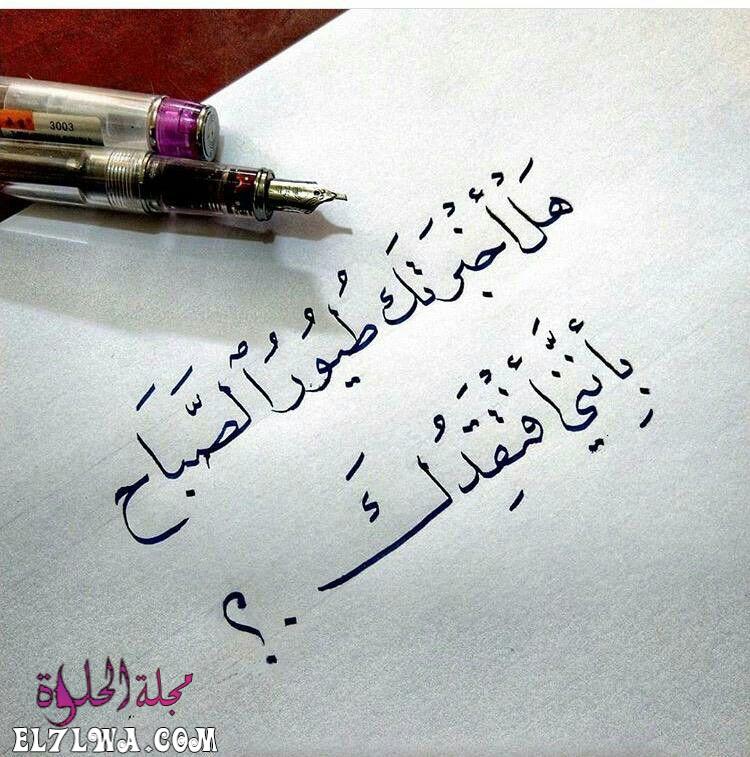 3003
هَلْ أَخْبَرَتْكَ طُيُورُ ٱلصَّبَاحَ
بِأَنَّنِي أَفْتَقِدُكَ
؟
مجلة الحلوة
EL7LWA.COM